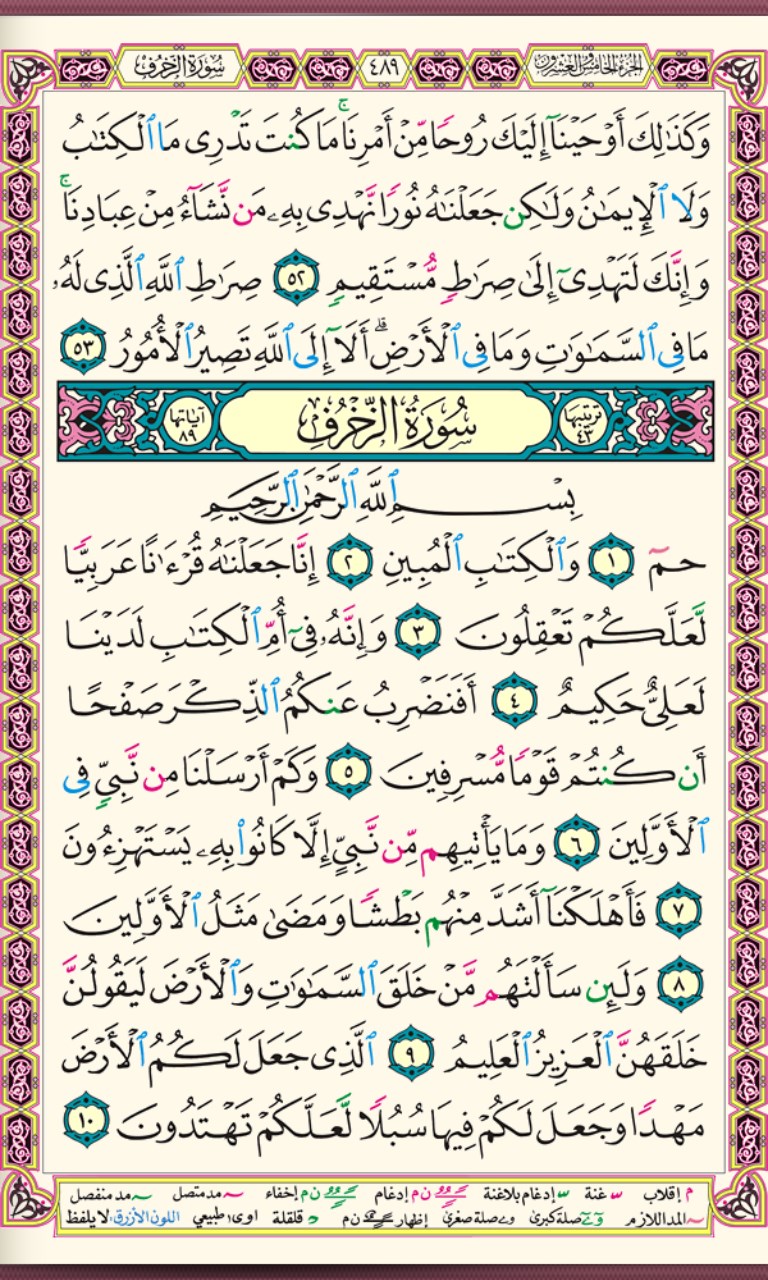 الجزء الخامس والعشرون ٤٨٩ سورة الزخرف
وَكَذَٰلِكَ أَوْحَيْنَآ إِلَيْكَ رُوحًا مِّنْ أَمْرِنَا ۚ مَا كُنتَ تَدْرِى مَا ٱلْكِتَٰبُ
وَلَا ٱلْإِيمَٰنُ وَلَٰكِن جَعَلْنَٰهُ نُورًا نَّهْدِى بِهِۦ مَن نَّشَآءُ مِنْ عِبَادِنَا ۚ
وَإِنَّكَ لَتَهْدِىٓ إِلَىٰ صِرَٰطٍ مُّسْتَقِيمٍ ٥٢ صِرَٰطِ ٱللَّهِ ٱلَّذِى لَهُۥ
مَا فِى ٱلسَّمَٰوَٰتِ وَمَا فِى ٱلْأَرْضِ ۗ أَلَآ إِلَى ٱللَّهِ تَصِيرُ ٱلْأُمُورُ ٥٣
ترتيبها ٤٣ سُورَةُ الزُّخْرُفِ آياتها ٨٩
بِسْمِ ٱللَّهِ ٱلرَّحْمَٰنِ ٱلرَّحِيمِ
حمٓ ١ وَٱلْكِتَٰبِ ٱلْمُبِينِ ٢ إِنَّا جَعَلْنَٰهُ قُرْءَٰنًا عَرَبِيًّا
لَّعَلَّكُمْ تَعْقِلُونَ ٣ وَإِنَّهُۥ فِىٓ أُمِّ ٱلْكِتَٰبِ لَدَيْنَا
لَعَلِىٌّ حَكِيمٌ ٤ أَفَنَضْرِبُ عَنكُمُ ٱلذِّكْرَ صَفْحًا
أَن كُنتُمْ قَوْمًا مُّسْرِفِينَ ٥ وَكَمْ أَرْسَلْنَا مِن نَّبِىٍّ فِى
ٱلْأَوَّلِينَ ٦ وَمَا يَأْتِيهِم مِّن نَّبِىٍّ إِلَّا كَانُوا۟ بِهِۦ يَسْتَهْزِءُونَ
٧ فَأَهْلَكْنَآ أَشَدَّ مِنْهُم بَطْشًا وَمَضَىٰ مَثَلُ ٱلْأَوَّلِينَ
٨ وَلَئِن سَأَلْتَهُم مَّنْ خَلَقَ ٱلسَّمَٰوَٰتِ وَٱلْأَرْضَ لَيَقُولُنَّ
خَلَقَهُنَّ ٱلْعَزِيزُ ٱلْعَلِيمُ ٩ ٱلَّذِى جَعَلَ لَكُمُ ٱلْأَرْضَ
مَهْدًا وَجَعَلَ لَكُمْ فِيهَا سُبُلًا لَّعَلَّكُمْ تَهْتَدُونَ ١٠
م إقلاب غنة إدغام بلاغنة ن م إدغام ن م إخفاء مد متصل مد منفصل
المد اللازم صلة كبرى صلة صغرى إظهار ن م قلقلة اوى: طبيعي اللون الأزرق: لا يلفظ